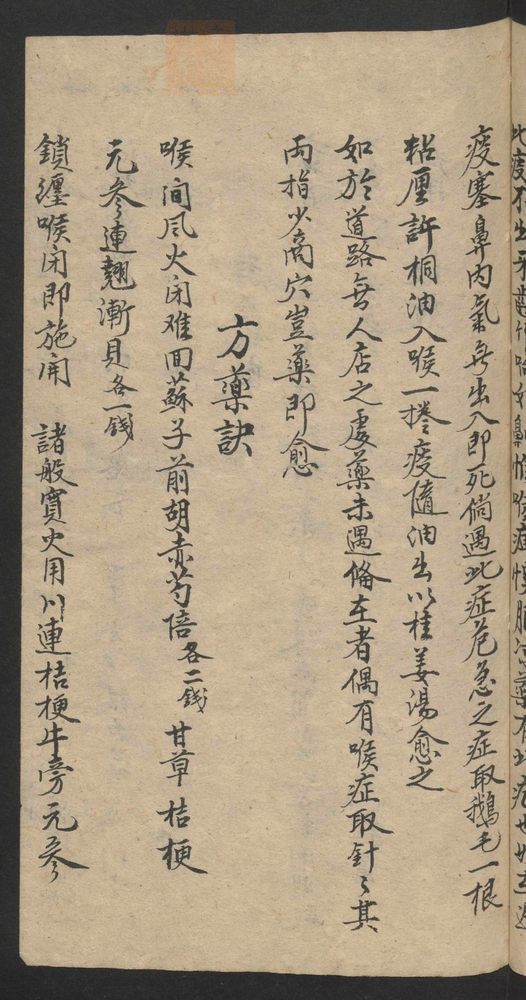 疫塞鼻內氣無出入即死倘遇此症危急之症取鵝毛一根
粘厘許桐油入喉一捲疫隨油出以桂姜湯愈之
如於道路無人店之處藥未遇俻在者偶有喉症取針〻其
兩指少商穴豈藥即愈
方藥訣
喉間風火闭难回蘇子前胡赤芍倍各二錢甘草桔梗
元參連翹漸貝各一錢
鎖纏喉闭即施開 諸般實火用川連桔梗牛旁元參